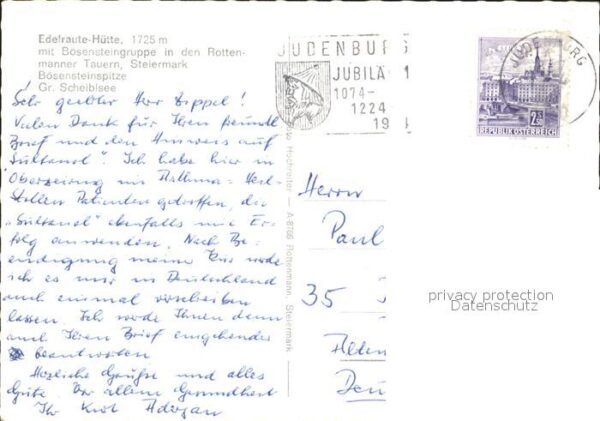 Edelraute-Hütte, 1725 m
mit Bösensteingruppe in den Rotten-
manner Tauern, Steiermark
Bösensteinspitze
Gr. Scheiblsee
Sehr geehrter Herr Zippel!
Vielen Dank für Ihren freundl.
Brief und den Hinweis auf
"Sultanol". Ich habe hier in
Oberzeiring im Asthma-Heil-
Stollen Patienten getroffen, die
"Sultanol" ebenfalls mit Er-
folg anwenden. Nach Be-
endigung meiner Kur werde
ich es mir in Deutschland
auch einmal verschreiben
lassen. Ich werde Ihnen dann
auch Ihren Brief eingehender
beantworten
Herzliche Grüße und alles
Gute. Vor allem Gesundheit
Ihr Kurt
Hochreiter — A-8786 Rottenmann, Steiermark
JUDENBURG
JUBILÄ
1074-
1224
19
JUDENBURG
2.50
REPUBLIK ÖSTERREICH
Herrn
Paul
35
privacy protection
Datenschutz
Alten
Deu